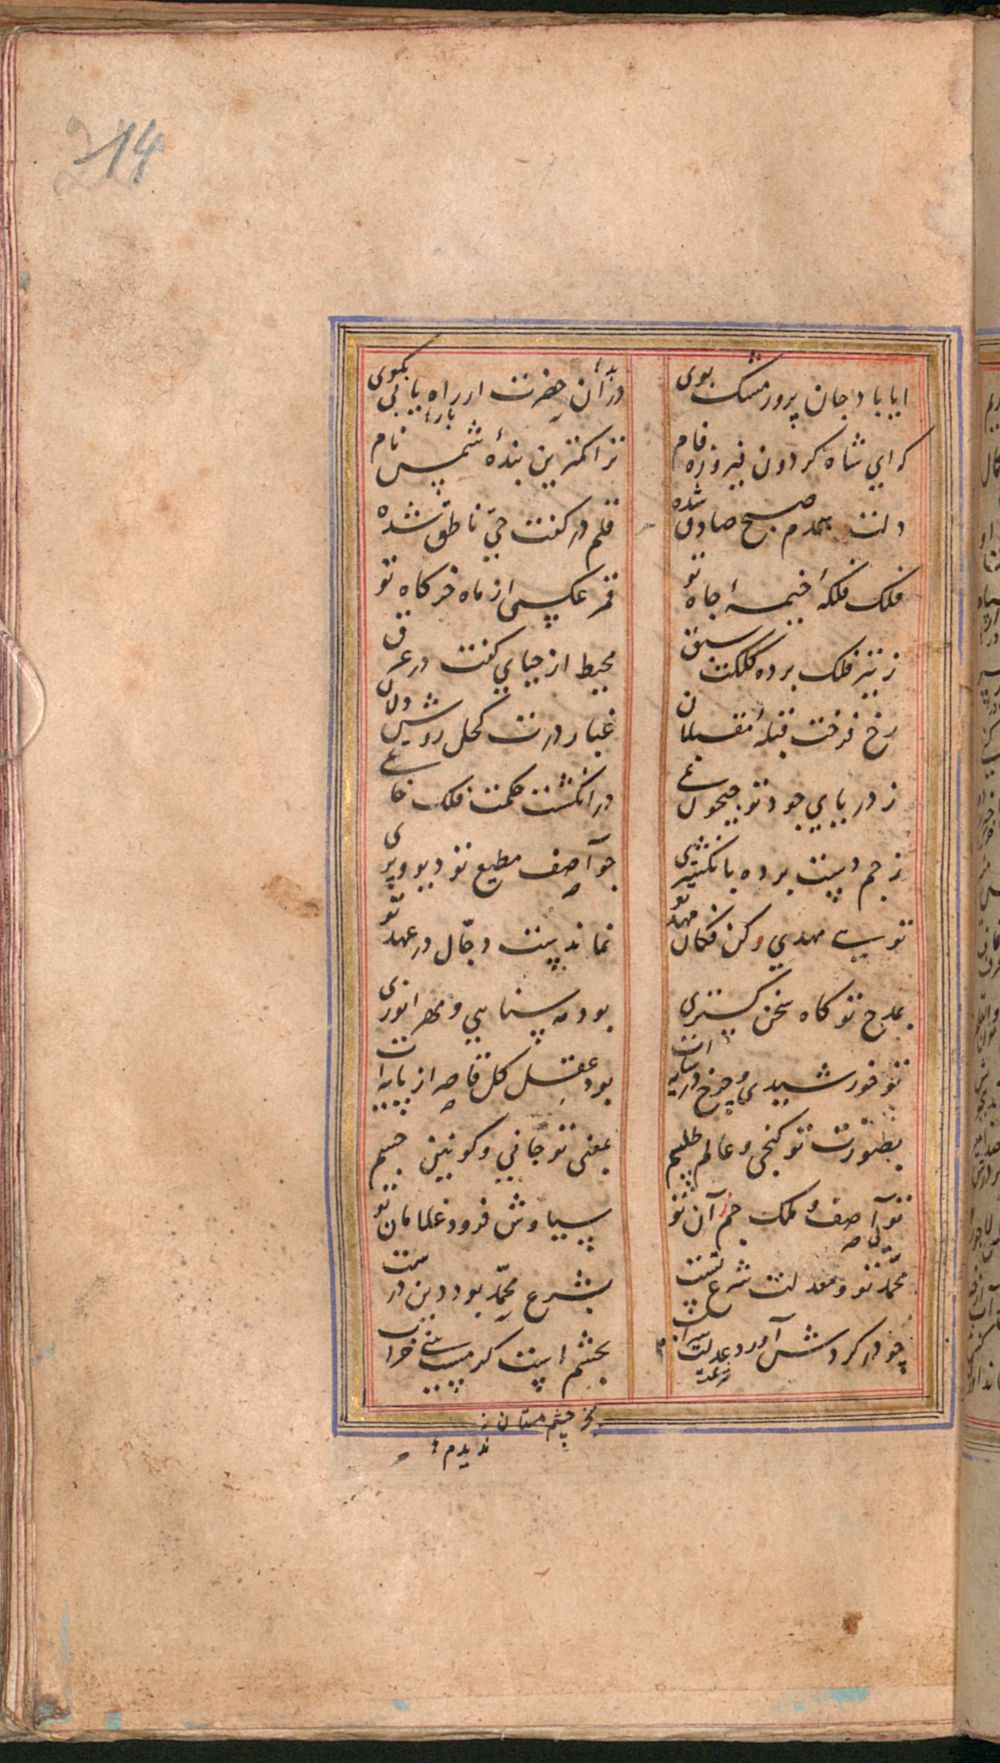 214
ایا باد جان پرور مشک بوی
در آن حضرت ار راه یابی بکوی
که ای شاه کردون فیروزه فام
ترا کمترین بندهٔ شمس نام
دلت همدم صبح صادق شده
قلم در کفت حیّ ناطق شده
فلک فلکهٔ خیمهٔ جاه تو
قمر عکسی از ماه خرکاه تو
ز تیر فلک برده کلکت سبق
محیط از حیای کفت در عرق
رخ فرخت قبلهٔ مقبلان
غبار درت کحل روشن دلان
ز دریای جود تو جیحون
در انکشت حکمت فلک خاتمی
ز جم دست برده بانکشتری
چو آصف مطیع تو دیو و پری
تویی مهدی و کن فکان مهد تو
نماند پست دجّال در عهد تو
بمدح تو کاه سخن کستری
بود مه سنایی و مهر انوری
تو خورشیدی و چرخ در سایه ات
بود عقل کل قاصر از پایه ات
بصورت تو کنجی و عالم طلسم
بمعنی تو جانی و کونین جسم
تو آصف و ملک جم آن تو
سیاوش فرود غلامان تو
محمّد تو و معدلت شرع تست
بشرع محمّد بود دین درست
چو در کردش آورد عدلت شراب
بچشم است کر مست بینی خراب
بجز چشم مستان ندیدم